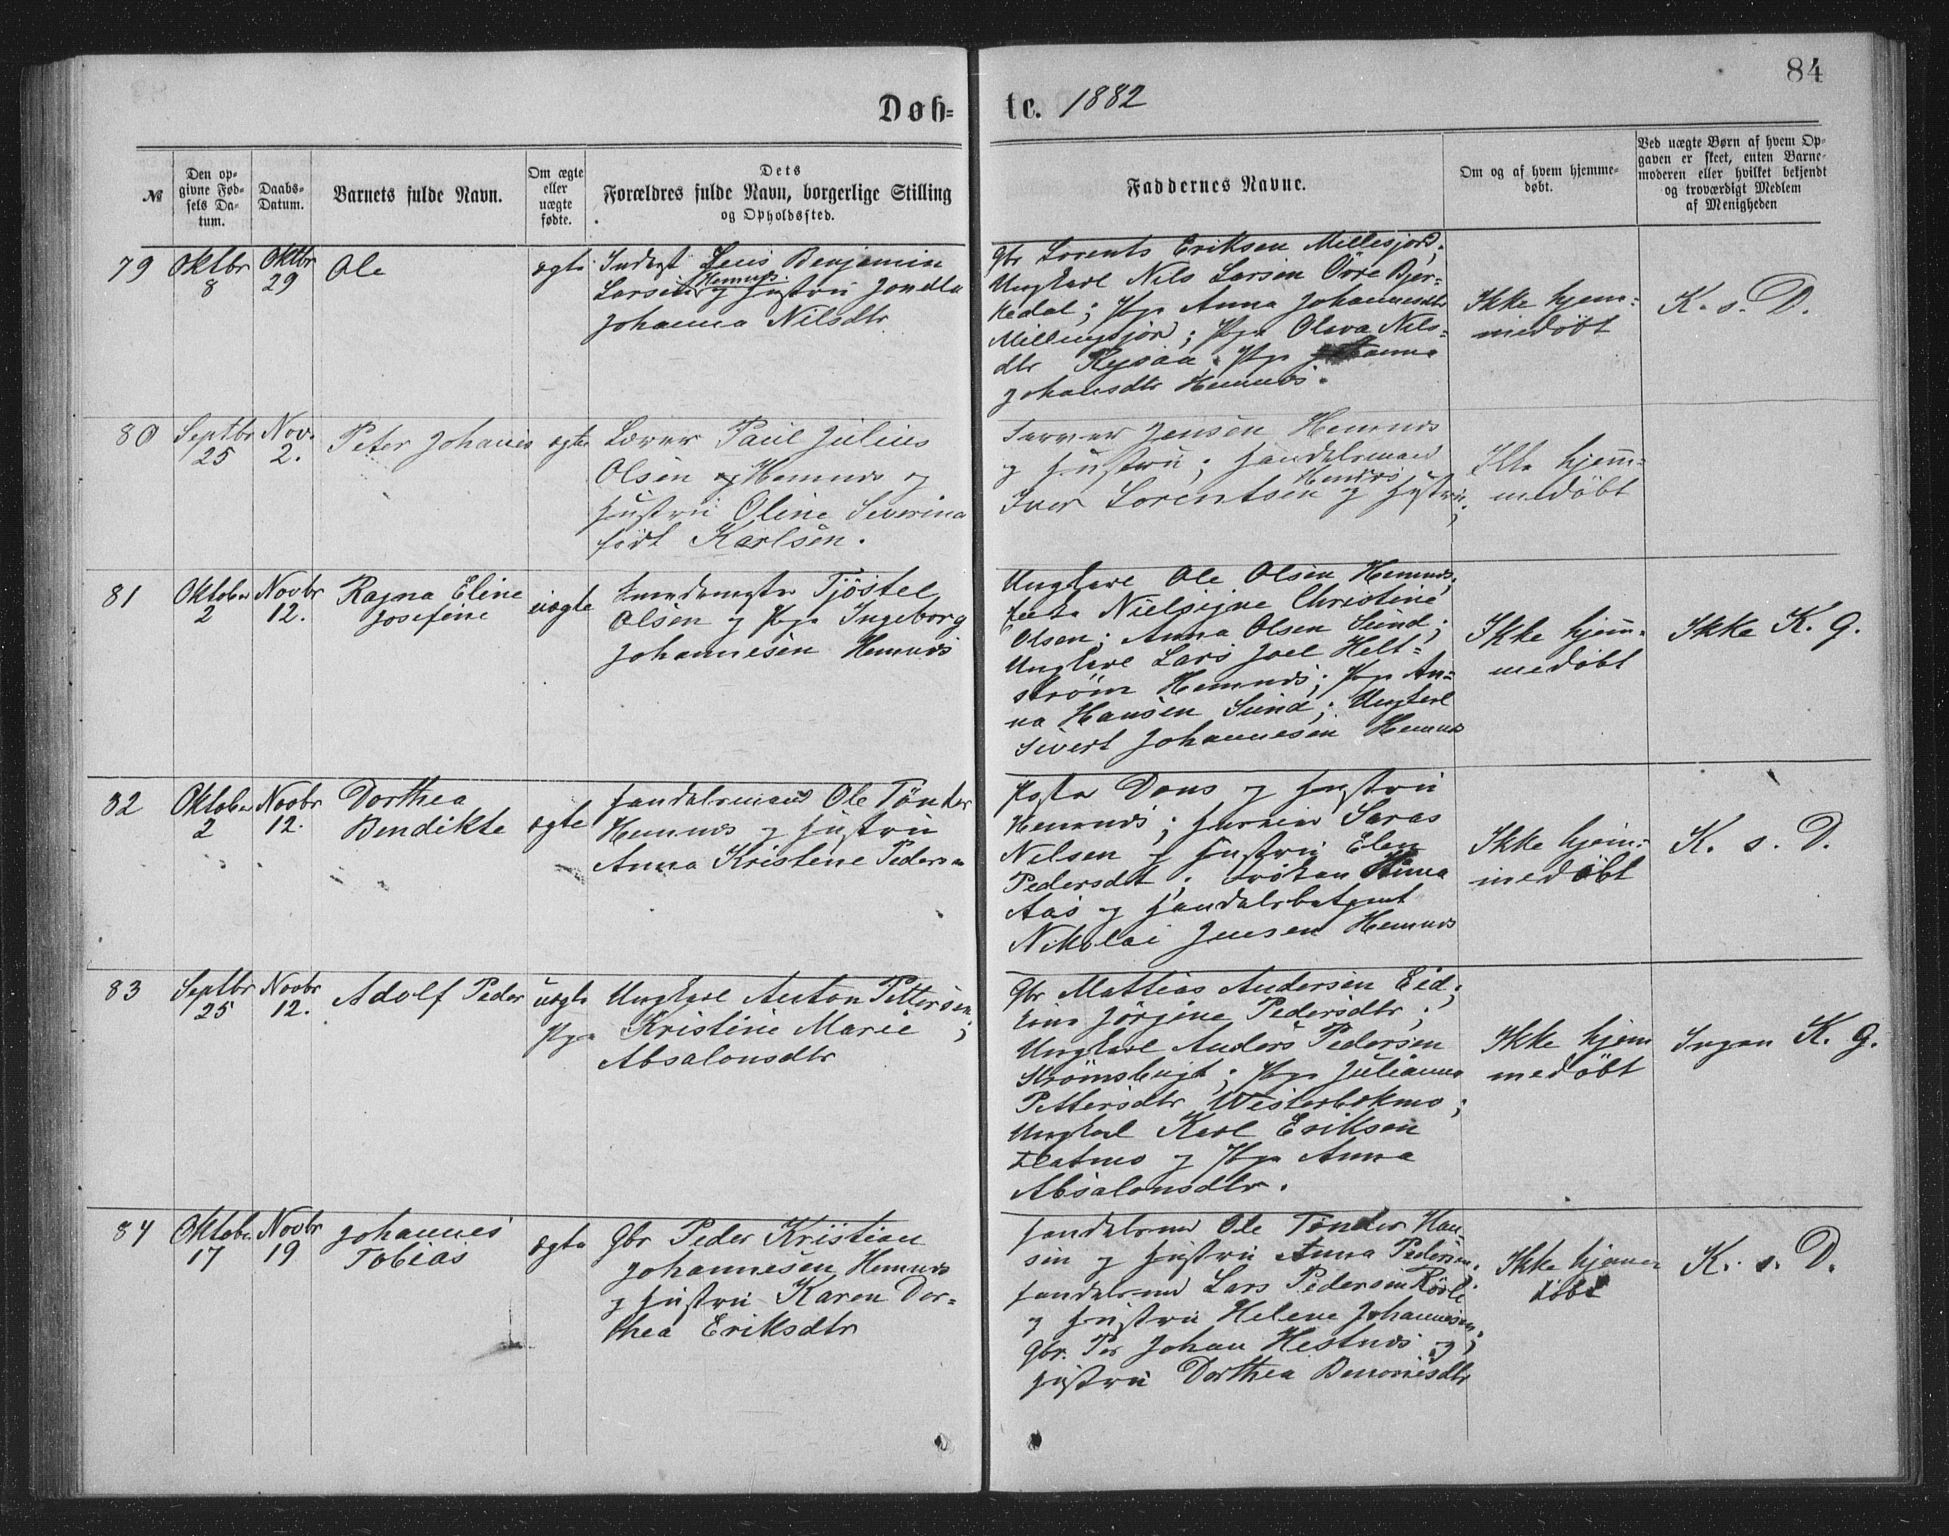 84
Døb-
te. 1882
№
Den op-
givne Fød-
sels Da-
tum.
Daabs-
Datum.
Barnets fulde Navn.
Om ægte
eller
uægte
fødte.
Dets
Forældres fulde Navn, borgerlige Stilling
og Opholdssted.
Faddernes Navne.
Om og af hvem hjemme-
døbt.
Ved uægte Børn af hvem Op-
gaven er skeet, enten Barne-
moderen eller hvilket bekjendt
og troværdigt Medlem
af Menigheden
79
Oktbr
8
Oktbr
29
Ole
ægte
Inderst Benjamin
Hemnæs
Larsen og Hustru
Johanna Nilsdtr
Gbr Lorents Eriksen Millesjord;
Ungkarl Nils Larsen Øvre Bjer-
kadal; Pge Anna Johannesdtr
; Pge Oleva Nils-
dtr ; Pge
Johansdtr Hemnæs.
Ikke hjem-
medøbt
K. s. D.
80
Septbr
25
Nov.
2.
Peter Johanes
ægte
Lærer Paul Julius
Olsen Hemnæs og
Hustru Oline Severina
født Karlsen.
Farver Jensen Hemnæs
og Hustru; Handelsmand
Hemnæs
Iver Lorentsen og Hustru;
Ikke hjem-
medøbt
81
Oktober
2
Novbr
12.
Ragna Eline
Josefine
uægte
Smedemester Tjöstel
Olsen og Pge Ingeborg
Johannesen Hemnæs
Ungkarl Ole Olsen Hemnæs;
Nielsigne Christine
Olsen; Anna Olsen Sund;
Ungkarl Lars Joel Helt-
strøm Hemnæs; Pge An-
na Hansen Sund; Ungkarl
Sivert Johannesen Hemnæs
Ikke hjem-
medøbt
Ikke K. G.
82
Oktober
2
Novbr
12.
Dorthea
Bendikte
ægte
Handelsmand Ole Tönder
Hemnæs og Hustru
Anna Kristine Pedersen
Pastor Dons og Hustru
Hemnæs; Saras
Nelsen og Hustru Elen
Pedersdt; Frøken Anna
Aas og Handelsbetjent
Nikolai Jensen Hemnæs
Ikke hjem-
medøbt
K. s. D.
83
Septbr
25
Novbr
12.
Adolf Peder
uægte
Ungkarl Anton Pettersen;
Pge Kristine Marie
Absalonsdtr
Gbr Mattias Andersen Eid;
Jörgine Pedersdtr;
Ungkarl Anders Pedersen
Strömsbugt; Pge Julianna
Pettersdtr ;
Ungkarl Karl Eriksen
Flatmo og Pge Anna
Absalonsdtr.
Ikke hjem
medøbt
Ingen K. G.
84
Oktober
17
Novbr
19
Johannes
Tobias
ægte
Gbr Peder Kristian
Johannesen Hemnæs
og Hustru Karen Dor-
thea Eriksdtr
Handelsmd Ole Tönder Han-
sen og Hustru Anna Pedersen.
Handelsmd Lars Pedersen Rösli
og Hustru Helene Johannesen;
Gbr. Per Johan Hestnæs og
Hustru Dorthea Benoniesdtr
Ikke hjemme
døbt
K. s. D.